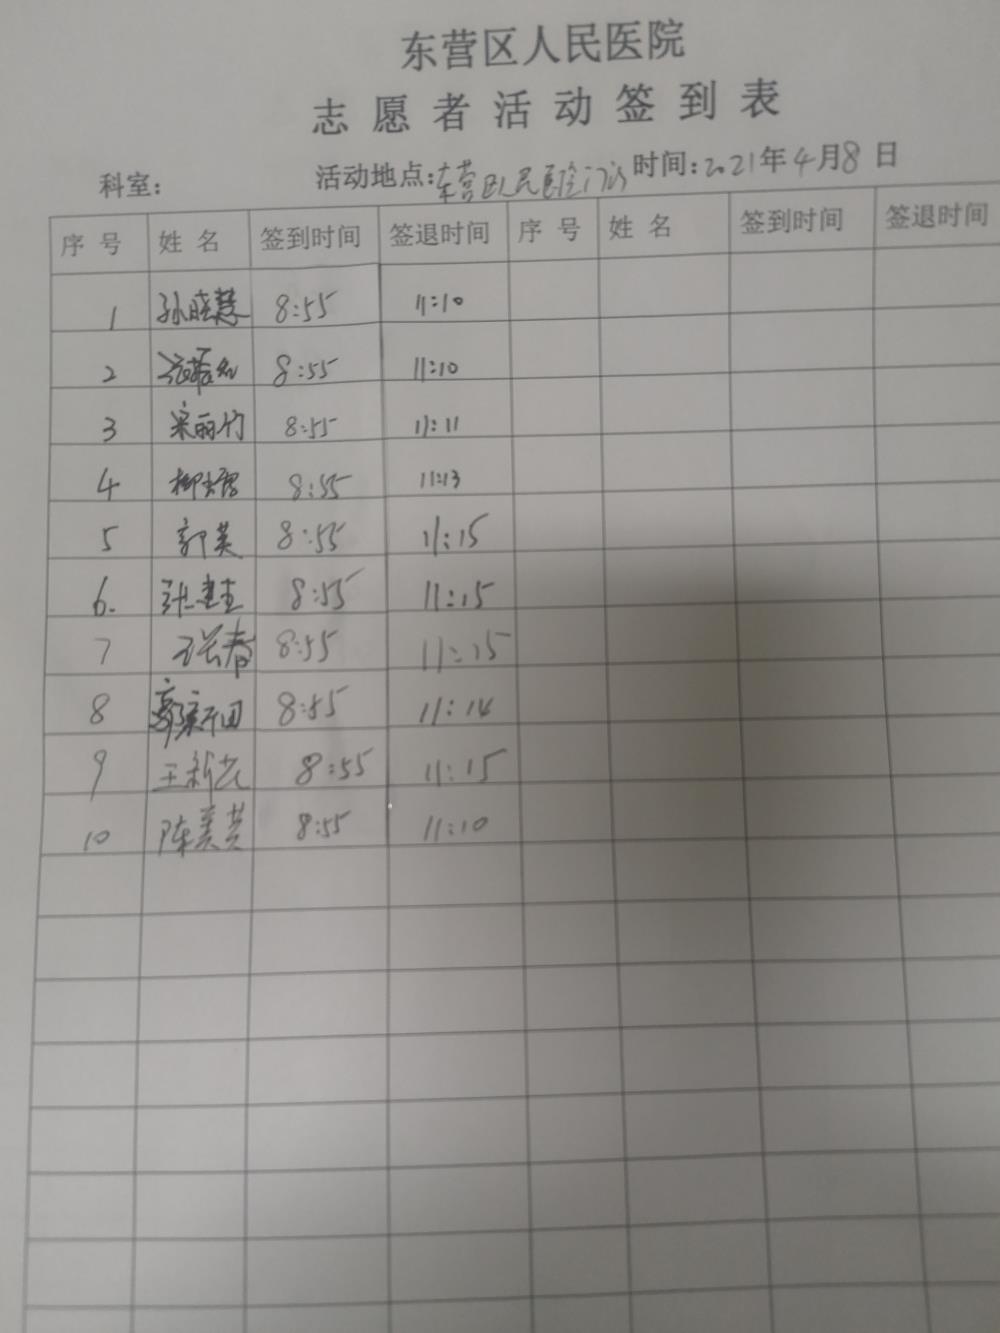 东营区人民医院
志愿者活动签到表
科室： 活动地点：东营区人民医院门诊 时间：2021年4月8日
序号 姓名 签到时间 签退时间 序号 姓名 签到时间 签退时间
1 孙晓慧 8:55 11:10
2 8:55 11:10
3 宋丽竹 8:55 11:11
4 8:55 11:13
5 郭英 8:55 11:15
6. 8:55 11:15
7 王长春 8:55 11:15
8 8:55 11:14
9 王新光 8:55 11:15
10 陈美芸 8:55 11:10